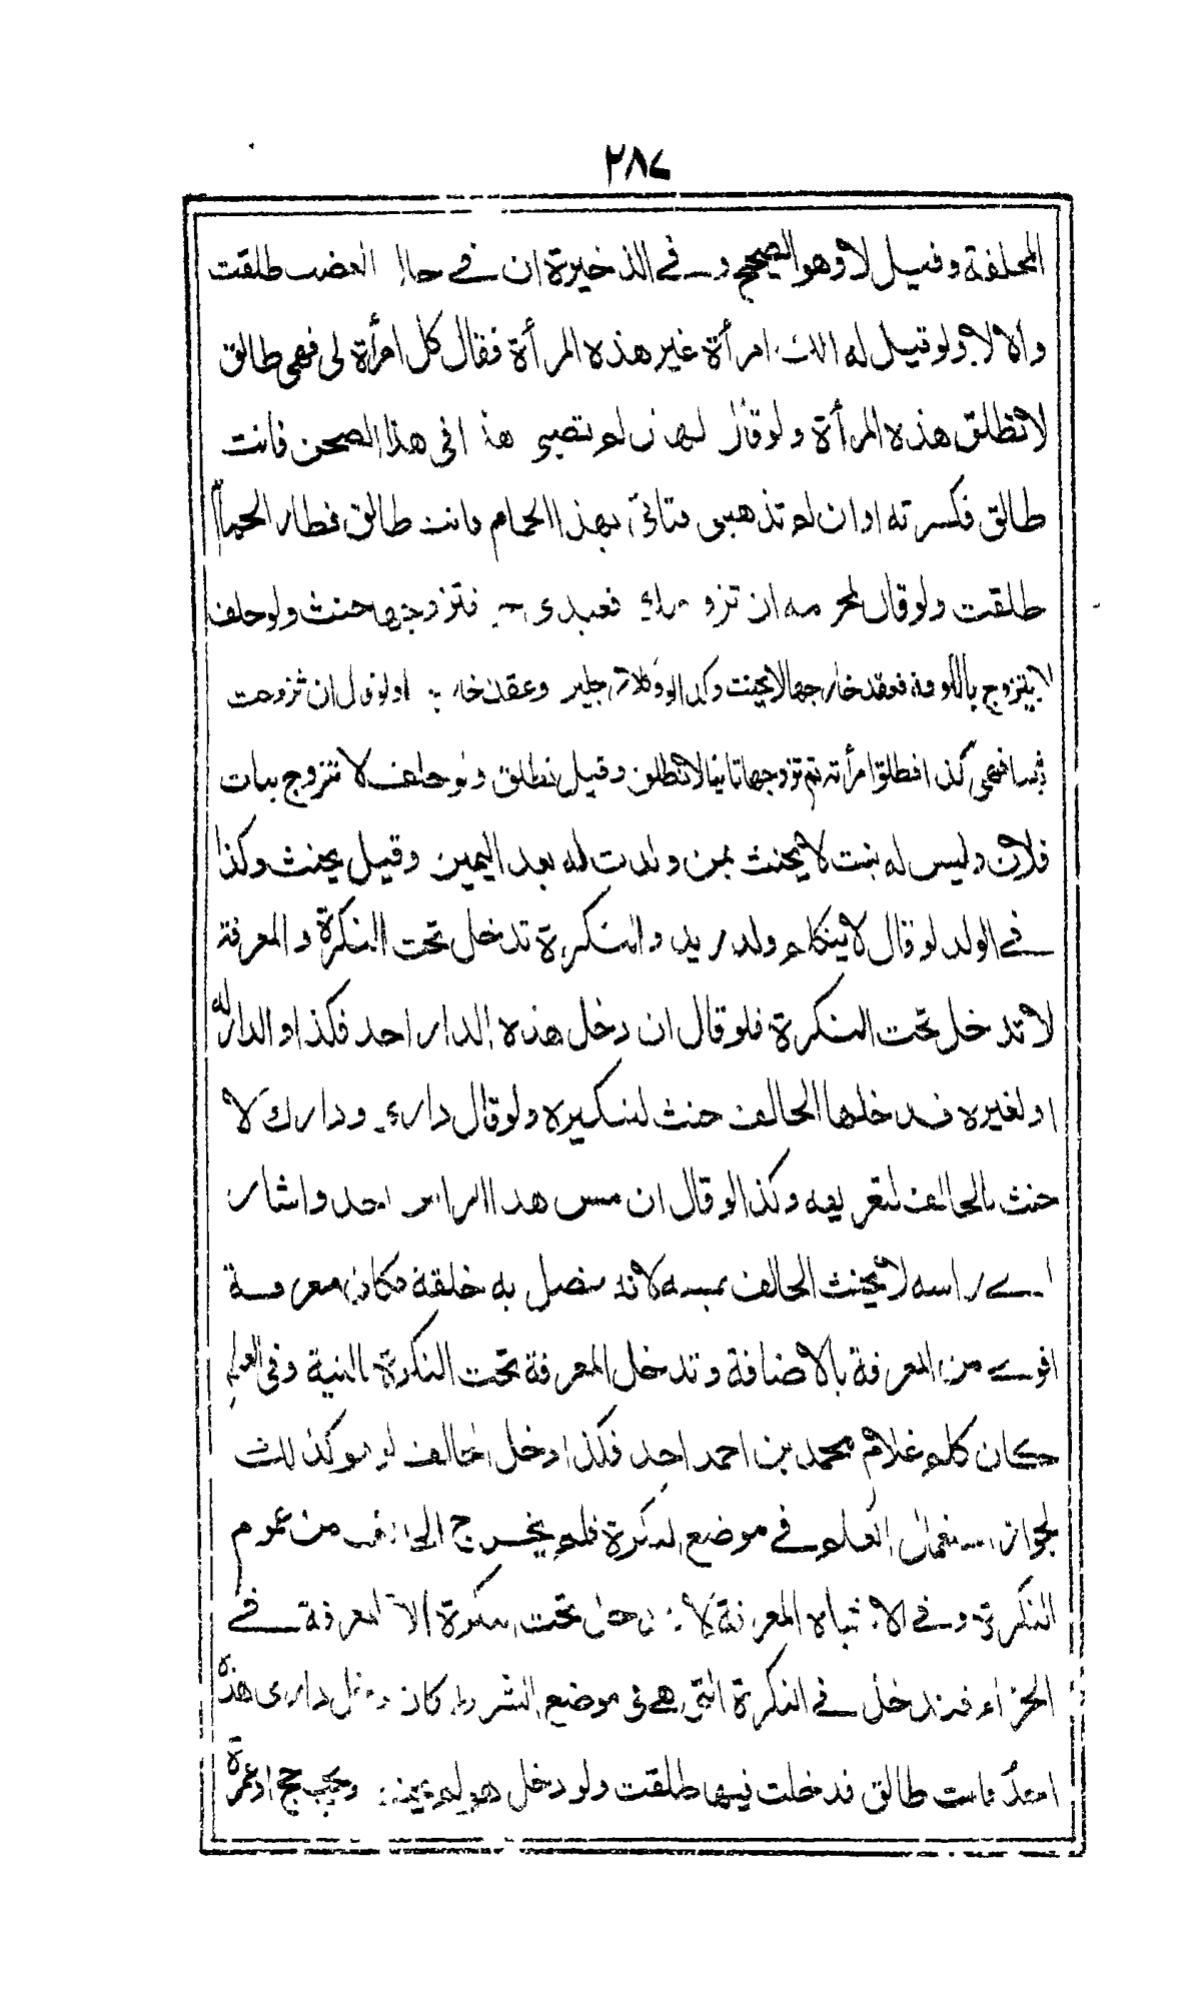 ٢٨٧
المحلفة وقيل لا وهو الصحيح وفي الذخيرة ان في حال الغضب طلقت
والا لا ولو قيل له الك امرأة غير هذه المرأة فقال كل امرأة لى فهى طالق
لا تطلق هذه المرأة ولو قال لها ان لم تصبى هذا فى هذا الصحن فانت
طالق فكسرته او ان لم تذهبى فتأتى بهذا الحمام فانت طالق فطار الحمام
طلقت ولو قال لمحرمه ان تزوجتك فعبدى حر فتزوجها حنث ولو حلف
لا يتزوج بالكوفة فعقد خارجها لا يحنث وكذا لو وعقد خارجها ولو قال ان تزوجت
فهى كذا فطلق امرأته ثم تزوجها ثانيا لا تطلق وقيل تطلق ولو حلف لا يتزوج ببنات
فلان وليس له بنت لا يحنث بمن ولدت له بعد اليمين وقيل يحنث وكذا
في الولد لو قال لا يتكلم ولد زيد والنكرة تدخل تحت النكرة والمعرفة
لا تدخل تحت النكرة فلو قال ان دخل هذه الدار احد فكذا والدار له
او لغيره فدخلها الحالف حنث لتنكيره ولو قال دارى ودارك لا
حنث بالحالف لتعريفه وكذا لو قال ان مس هذا الراس احد واشار
الى راسه لا يحنث الحالف بمسه لانه متصل به خلقة فكان معرفة
اقوى من المعرفة بالاضافة وتدخل المعرفة تحت النكرة بالنية وفى العلم
كان كلم غلام محمد بن احمد احد فكذا دخل الحالف لو هو كذلك
لجواز استعمال العلم في موضع النكرة فلم يخرج الحالف من عموم
النكرة وفي الاشباه المعرفة لا تدخل تحت النكرة الا المعرفة في
الجزاء فتدخل في النكرة التى هى فى موضع الشرط كان دخل دارى هذه
احد فانت طالق فدخلت فيها طلقت ولو دخل هو لم يحنث ويجب حج او عمرة